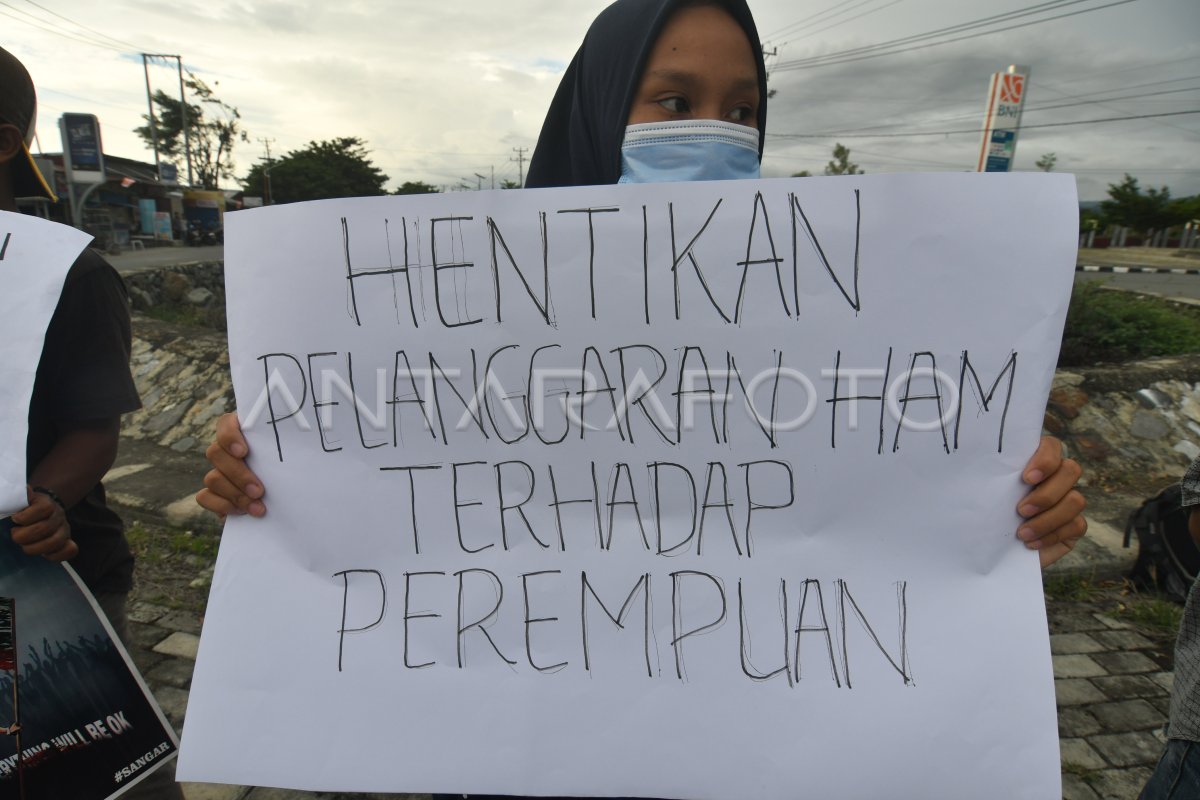 HENTIKAN
PELANGGARAN HAM
TERHADAP
PEREMPUAN
ANTARAFOTO
BNI
WILL BE OK
#SANGAR